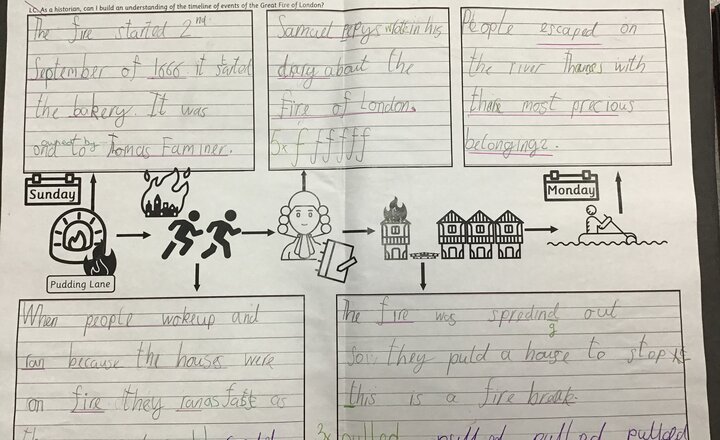 LC. As a historian, can I build an understanding of the timeline of events of the Great Fire of London?
The fire started 2nd
September of 1666 it started
the bakery. It was
owned by
Tomas Faminer.
Samuel pepys wrote in his
diary about the
fire of London.
5x f f f f f f
People escaped on
the river Thames with
there most precious
belongings.
Sunday
Monday
Pudding Lane
When people wokeup and
ran because the houses were
on fire they ran fast as
The fire was spreding out
so they puld a house to stop
this is a fire break.
3x pulled pulled pulled pulled